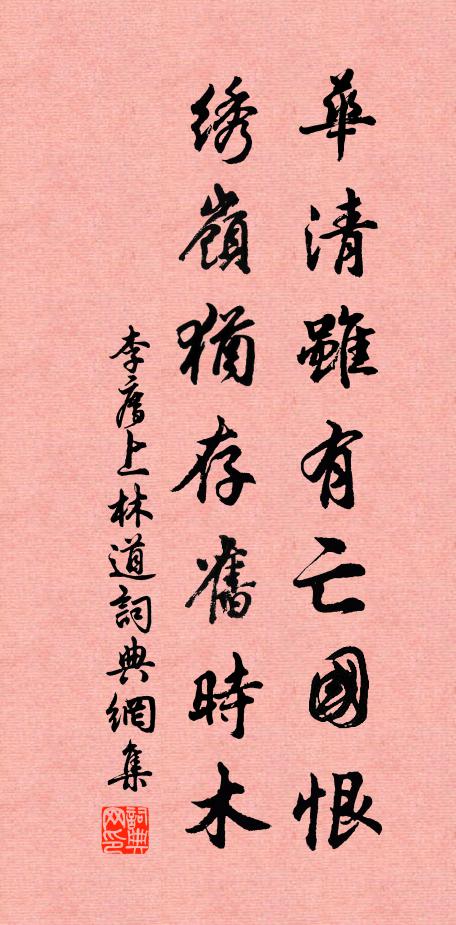 華清雖有亡國恨
绣嶺猶存舊時木
李廌上林道詞典網集
詞典网印